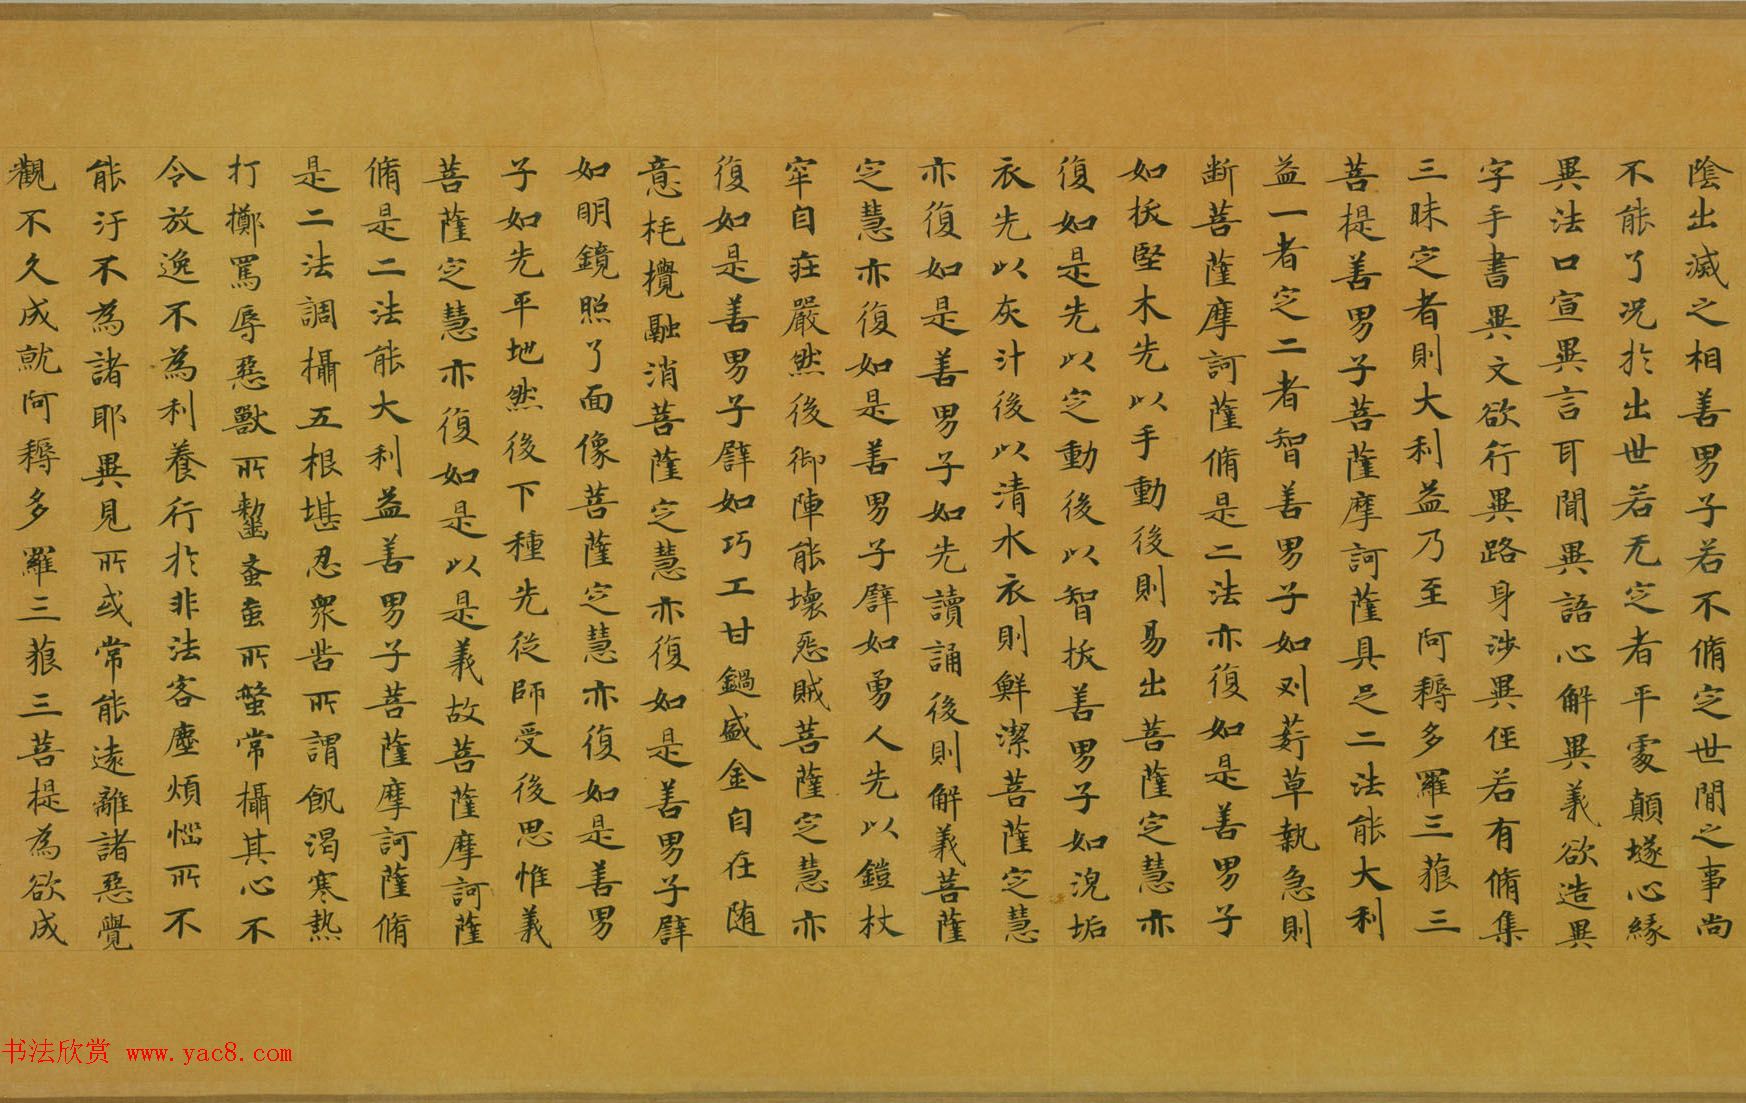 陰出滅之相善男子若不脩定世間之事尚
不能了況於出世若无定者平處顛墜心緣
異法口宣異言耳聞異語心解異義欲造異
字手書異文欲行異路身涉異徑若有脩集
三昧定者則大利益乃至阿耨多羅三藐三
菩提善男子菩薩摩訶薩具足二法能大利
益一者定二者智善男子如刈菥草執急則
断菩薩摩訶薩脩是二法亦復如是善男子
如拔堅木先以手動後則易出菩薩定慧亦
復如是先以定動後以智拔善男子如浣垢
衣先以灰汁後以清水衣則鮮潔菩薩定慧
亦復如是善男子如先讀誦後則解義菩薩
定慧亦復如是善男子譬如勇人先以鎧杖
牢自莊嚴然後御陣能壞惡賊菩薩定慧亦
復如是善男子譬如巧工甘鍋盛金自在随
意秏攪融消菩薩定慧亦復如是善男子譬
如明鏡照了面像菩薩定慧亦復如是善男
子如先平地然後下種先從師受後思惟義
菩薩定慧亦復如是以是義故菩薩摩訶薩
脩是二法能大利益善男子菩薩摩訶薩脩
是二法調攝五根堪忍衆苦所謂飢渴寒熱
打擲罵辱惡獸所齧蚉䖟所螫常攝其心不
令放逸不為利養行於非法客塵煩惱所不
能汙不為諸耶異見所或常能遠離諸惡覺
觀不久成就阿耨多羅三藐三菩提為欲成
书法欣赏 www.yac8.com